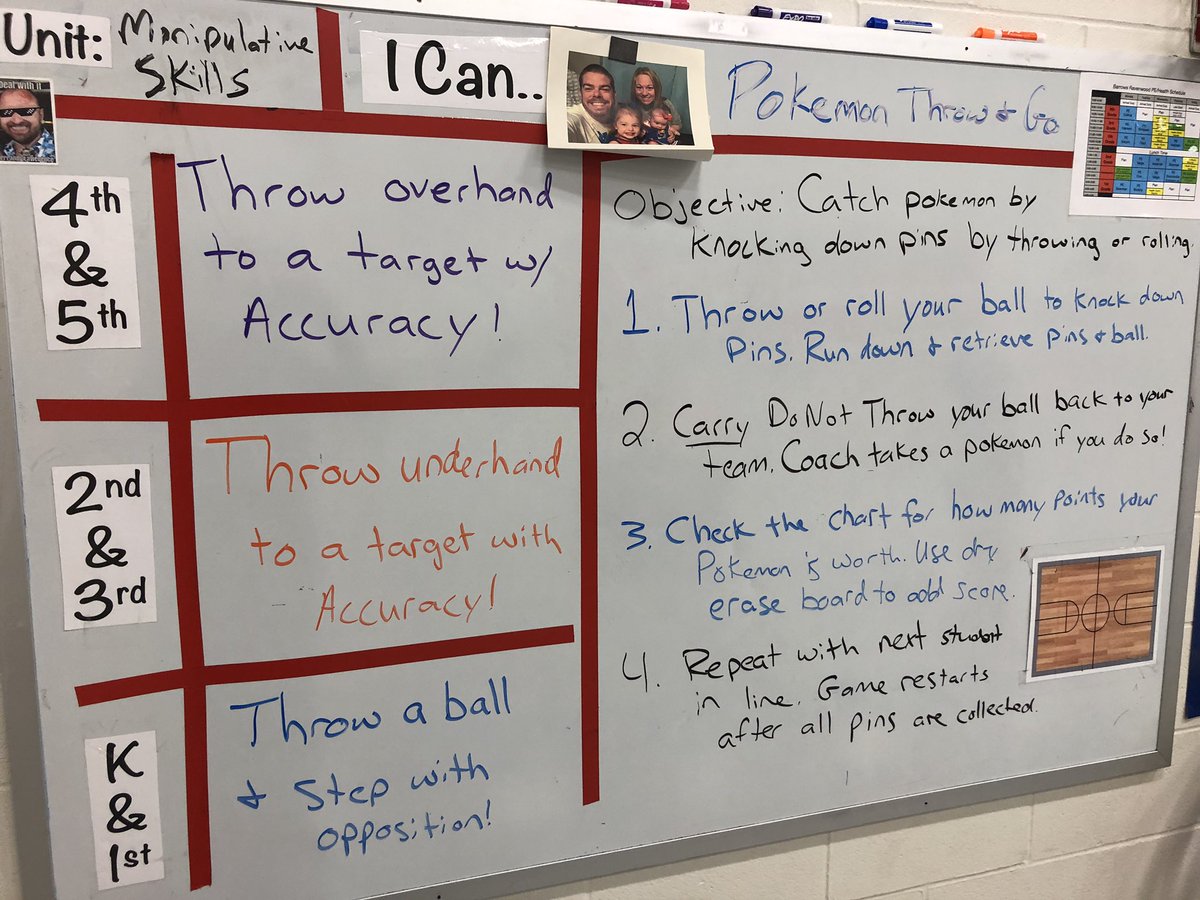 Unit:
Manipulative
Skills
I Can..
Pokemon Throw & Go
EXPO
Deal with it
Barrows Ravenwood PE/Health Schedule
Lunch Time
4th
&
5th
Throw overhand
to a target w/
Accuracy!
2nd
&
3rd
Throw underhand
to a target with
Accuracy!
K
&
1st
Throw a ball
& Step with
opposition!
Objective: Catch pokemon by
knocking down pins by throwing or rolling.
1. Throw or roll your ball to knock down
pins. Run down & retrieve pins & ball.
2. Carry Do Not Throw your ball back to your
team. Coach takes a pokemon if you do so!
3. Check the chart for how many points your
Pokemon is worth. Use dry
erase board to add score.
4. Repeat with next student
in line. Game restarts
after all pins are collected.